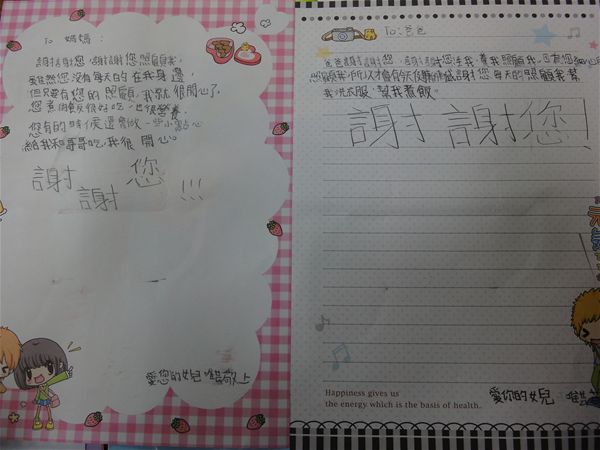 To 媽媽:
謝謝您,謝謝您照顧我,
雖然您沒有每天的在我身邊,
但只要有您的照顧,我就很開心了,
您煮的飯很好吃,也很營養,
您有的時候還會做一些小點心
給我和哥哥吃,我很開心。
謝謝您!!!
愛您的女兒 敬上
To:爸爸
爸爸謝謝您,謝謝您生我,養我照顧我,因為您
照顧我,所以才會有今天 感謝您每天的照顧我幫
我洗衣服、幫我煮飯。
謝謝您!
Happiness gives us
the energy which is the basis of health.
愛你的女兒